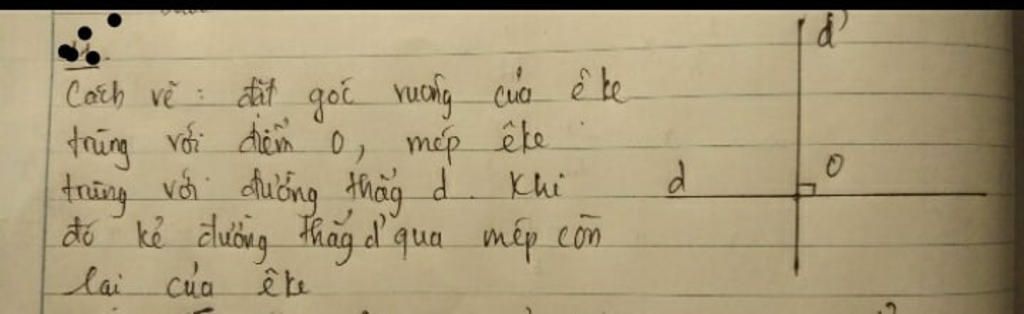 d'
Cách vẽ : đặt góc vuông của ê ke
trùng với điểm O, mép êke
trùng với đường thẳg d. Khi
d
O
đó kẻ đường thẳg d' qua mép còn
lại của êke